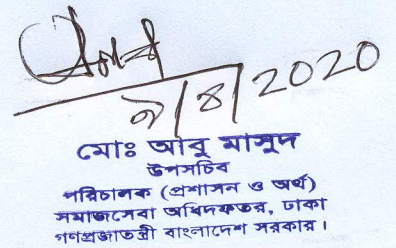 ৯/৪/২০২০
মোঃ আবু মাসুদ
উপসচিব
পরিচালক (প্রশাসন ও অর্থ)
সমাজসেবা অধিদফতর, ঢাকা
গণপ্রজাতন্ত্রী বাংলাদেশ সরকার।